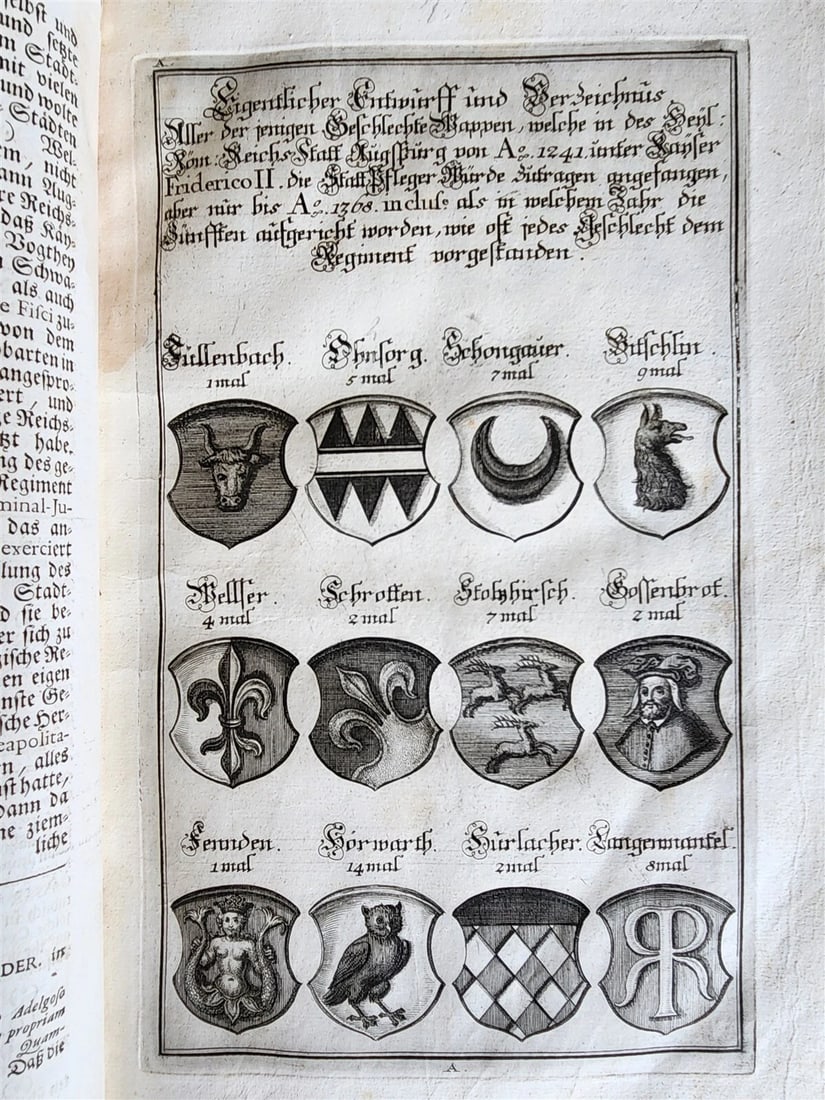 selbst und
und setzte
m Stadt-
mit vielen
und wolte
Städten
) Wel-
em, nicht
ann Aug-
re Reichs-
daß Käy-
Vogthey
n Schwa-
als auch
e Fisci zu-
von dem
obarten in
angespro-
ert, und
ge Reichs-
tzt habe.
ng des ge-
Regiment
minal-Ju-
das an-
exerciert
lung des
Stadt-
d sie be-
er sich zu
zische Re-
en eigen
nste Ge-
sche Her-
eapolita-
n, alles
nst hatte,
dann da
ne ziem-
liche
DER. in
Adelgoso
propriam
Quam-
Daß die
A.
Eigentlicher Entwurff und Verzeichnus
Aller der jenigen Geschlechte Wappen, welche in des Heyl:
Röm: Reichs Statt Augspurg von Ao. 1241. unter Kayser
Friderico II. die Statt Pfleger Würde zutragen angefangen,
aber nur bis Ao. 1368. inclus. als in welchem Jahr die
Zünfften aufgericht worden, wie oft jedes Geschlecht dem
Regiment vorgestanden.
Füllenbach. Ohnsorg. Schongauer. Bitschlin.
1 mal 5 mal 7 mal 9 mal
Wellser. Schrotten. Stolzhirsch. Gossenbrot.
4 mal 2 mal 7 mal 2 mal
Fennden. Hörwarth. Hurlacher. Langenmantel.
1 mal 14 mal 2 mal 8 mal
R
A